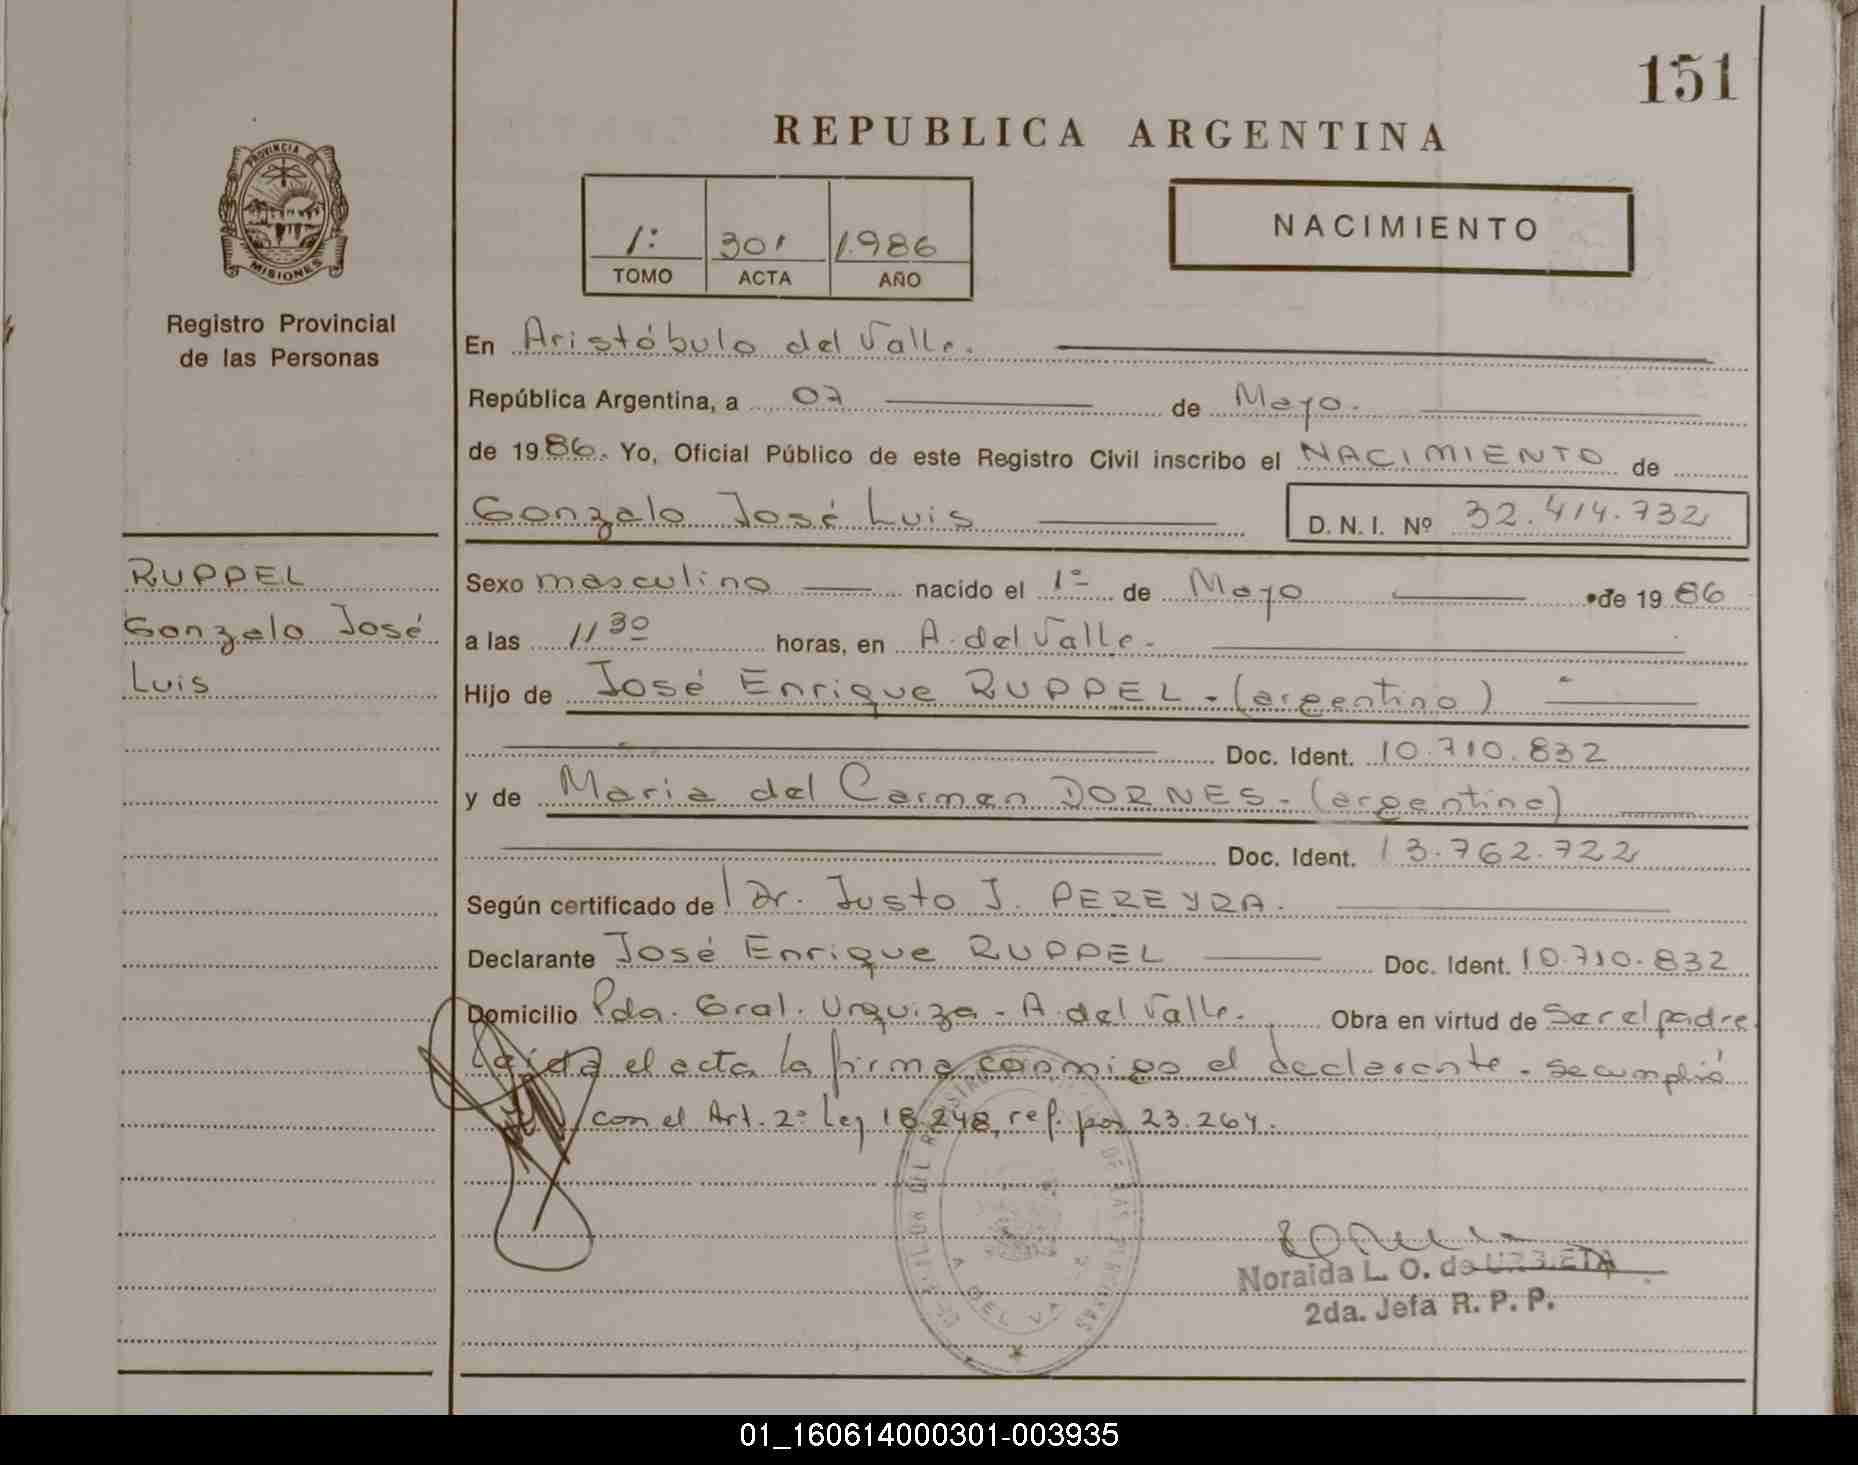 151
REPUBLICA ARGENTINA
PROVINCIA DE
MISIONES
Registro Provincial
de las Personas
1: 301 1986
TOMO ACTA AÑO
NACIMIENTO
En Aristóbulo del Valle.
República Argentina, a 07 de Mayo.
de 1986. Yo, Oficial Público de este Registro Civil inscribo el NACIMIENTO de
Gonzalo José Luis D. N. I. Nº 32.414.732
RUPPEL
Gonzalo José
Luis
Sexo masculino nacido el 1º de Mayo de 1986
a las 11 30 horas, en A. del Valle.
Hijo de José Enrique RUPPEL - (argentino)
Doc. Ident. 10.710.832
y de Maria del Carmen DORNES - (argentina)
Doc. Ident. 13.762.722
Según certificado de Dr. Justo J. PEREYRA.
Declarante José Enrique RUPPEL Doc. Ident. 10.710.832
Domicilio Pda. Gral. Urquiza - A. del Valle. Obra en virtud de ser el padre
Leida el acta la firma conmigo el declarante - se cumplió
con el Art. 2º Ley 18.248, ref. por 23.264.
DE LAS PERSONAS
A DEL VA
Noraida L. O. de URBIETA
2da. Jefa R. P. P.
01_160614000301-003935